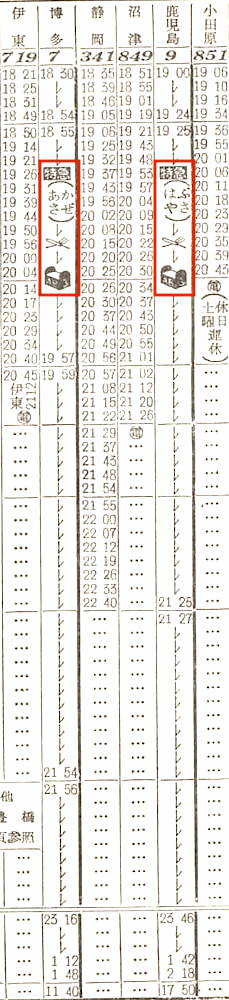 伊東 博多 静岡 沼津 鹿児島 小田原
719 7 341 849 9 851
18 21 18 30 18 35 18 51 19 00 19 06
18 25 18 39 18 55 19 10
18 31 18 46 19 01 19 16
18 49 18 54 19 05 19 19 19 24 19 34
18 50 18 55 19 06 19 21 19 25 19 36
19 14 19 25 19 43 19 55
19 21 19 32 19 48 20 01
19 26 特急 19 37 19 53 特急 20 06
19 31 (あさかぜ) 19 43 19 57 (はやぶさ) 20 11
19 39 20 04 20 18
19 44 20 02 20 09 20 23
19 50 20 08 20 15 20 29
19 56 20 15 20 22 20 35
20 00 20 20 20 25 20 39
20 04 20 25 20 30 20 43
20 14 20 26 20 34
20 17 20 30 20 37 (土曜日運休)
20 23 20 37 20 43
20 29 20 44 20 50
20 34 20 49 20 55
20 40 19 57 20 56 21 01 …
20 45 19 59 20 57 21 02 …
伊東 21 12 21 08 21 12 …
21 15 21 20 …
21 22 21 26 …
21 29 …
21 37 … …
21 43 … …
21 48 … …
21 54 … …
… 21 55 … …
… 22 00 … …
… 22 07 … …
… 22 12 … …
… 22 19 … …
… 22 26 … …
… 22 33 … …
… 22 40 … 21 25 …
… … … 21 27 …
… 21 54 … … …
他 21 56 … … …
豊橋
頁参照
… 23 16 … … 23 46 …
… 1 12 … … 1 42 …
… 1 48 … … 2 18 …
… 11 40 … … 17 50 …